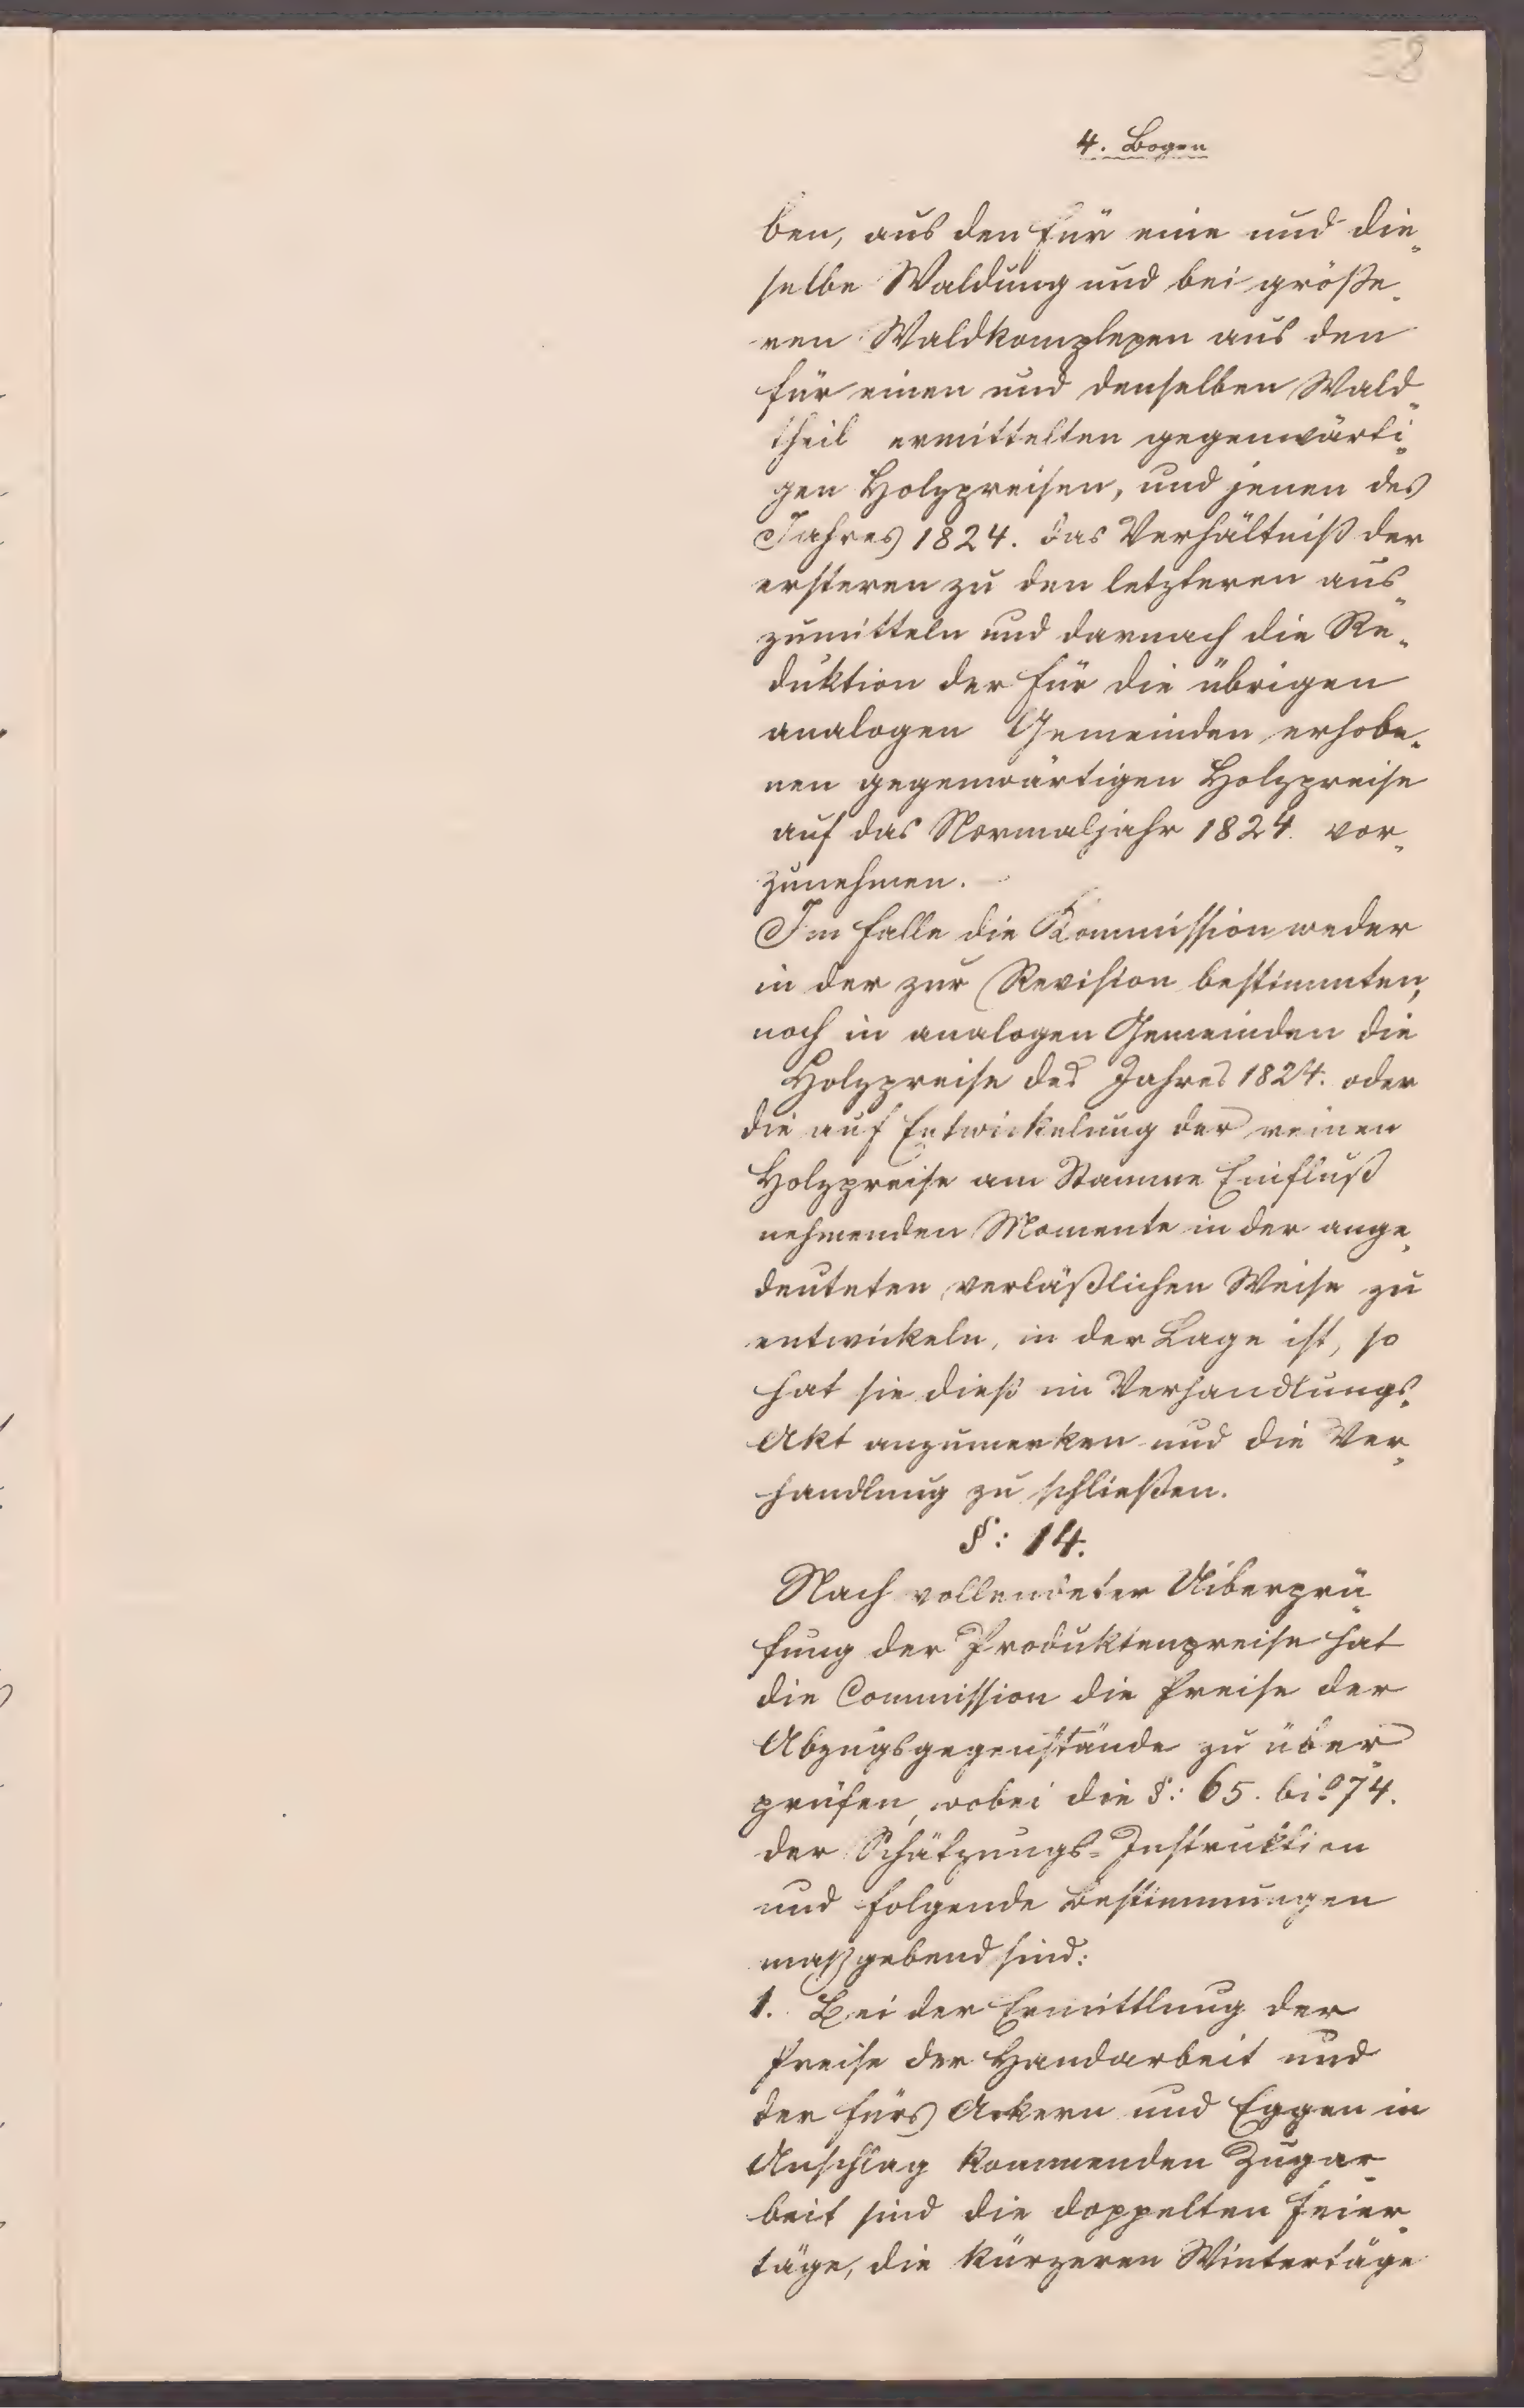 58
4. Bogen
ben, aus den für eine und die-
selbe Waldung und bei größe-
ren Waldkomplexen aus den
für einen und denselben Wald-
theil ermittelten gegenwärti-
gen Holzpreisen, und jenen des
Jahres 1824. das Verhältniß der
ersteren zu den letzteren aus-
zumitteln und darnach die Re-
duktion der für die übrigen
analogen Gemeinden erhobe-
nen gegenwärtigen Holzpreise
auf das Normaljahr 1824. vor-
zunehmen.
Im Falle die Kommission weder
in der zur Revision bestimmten,
noch in analogen Gemeinden die
Holzpreise des Jahres 1824. oder
die auf Entwickelung der reinen
Holzpreise am Stamme Einfluß
nehmenden Momente in der ange-
deuteten verläßlichen Weise zu
entwickeln, in der Lage ist, so
hat sie dieß im Verhandlungs-
Akt anzumerken und die Ver-
handlung zu schließen.
§: 14.
Nach vollendeter Uiberprü-
fung der Produktenpreise hat
die Commission die Preise der
Abzugsgegenstände zu über-
prüfen, wobei die §: 65. bis 74.
der Schätzungs-Instruktion
und folgende Bestimmungen
maßgebend sind:
1. Bei der Ermittlung der
Preise der Handarbeit und
der fürs Ackern und Eggen in
Anschlag kommenden Zugar-
beit sind die doppelten Feier-
täge, die kürzeren Wintertäge